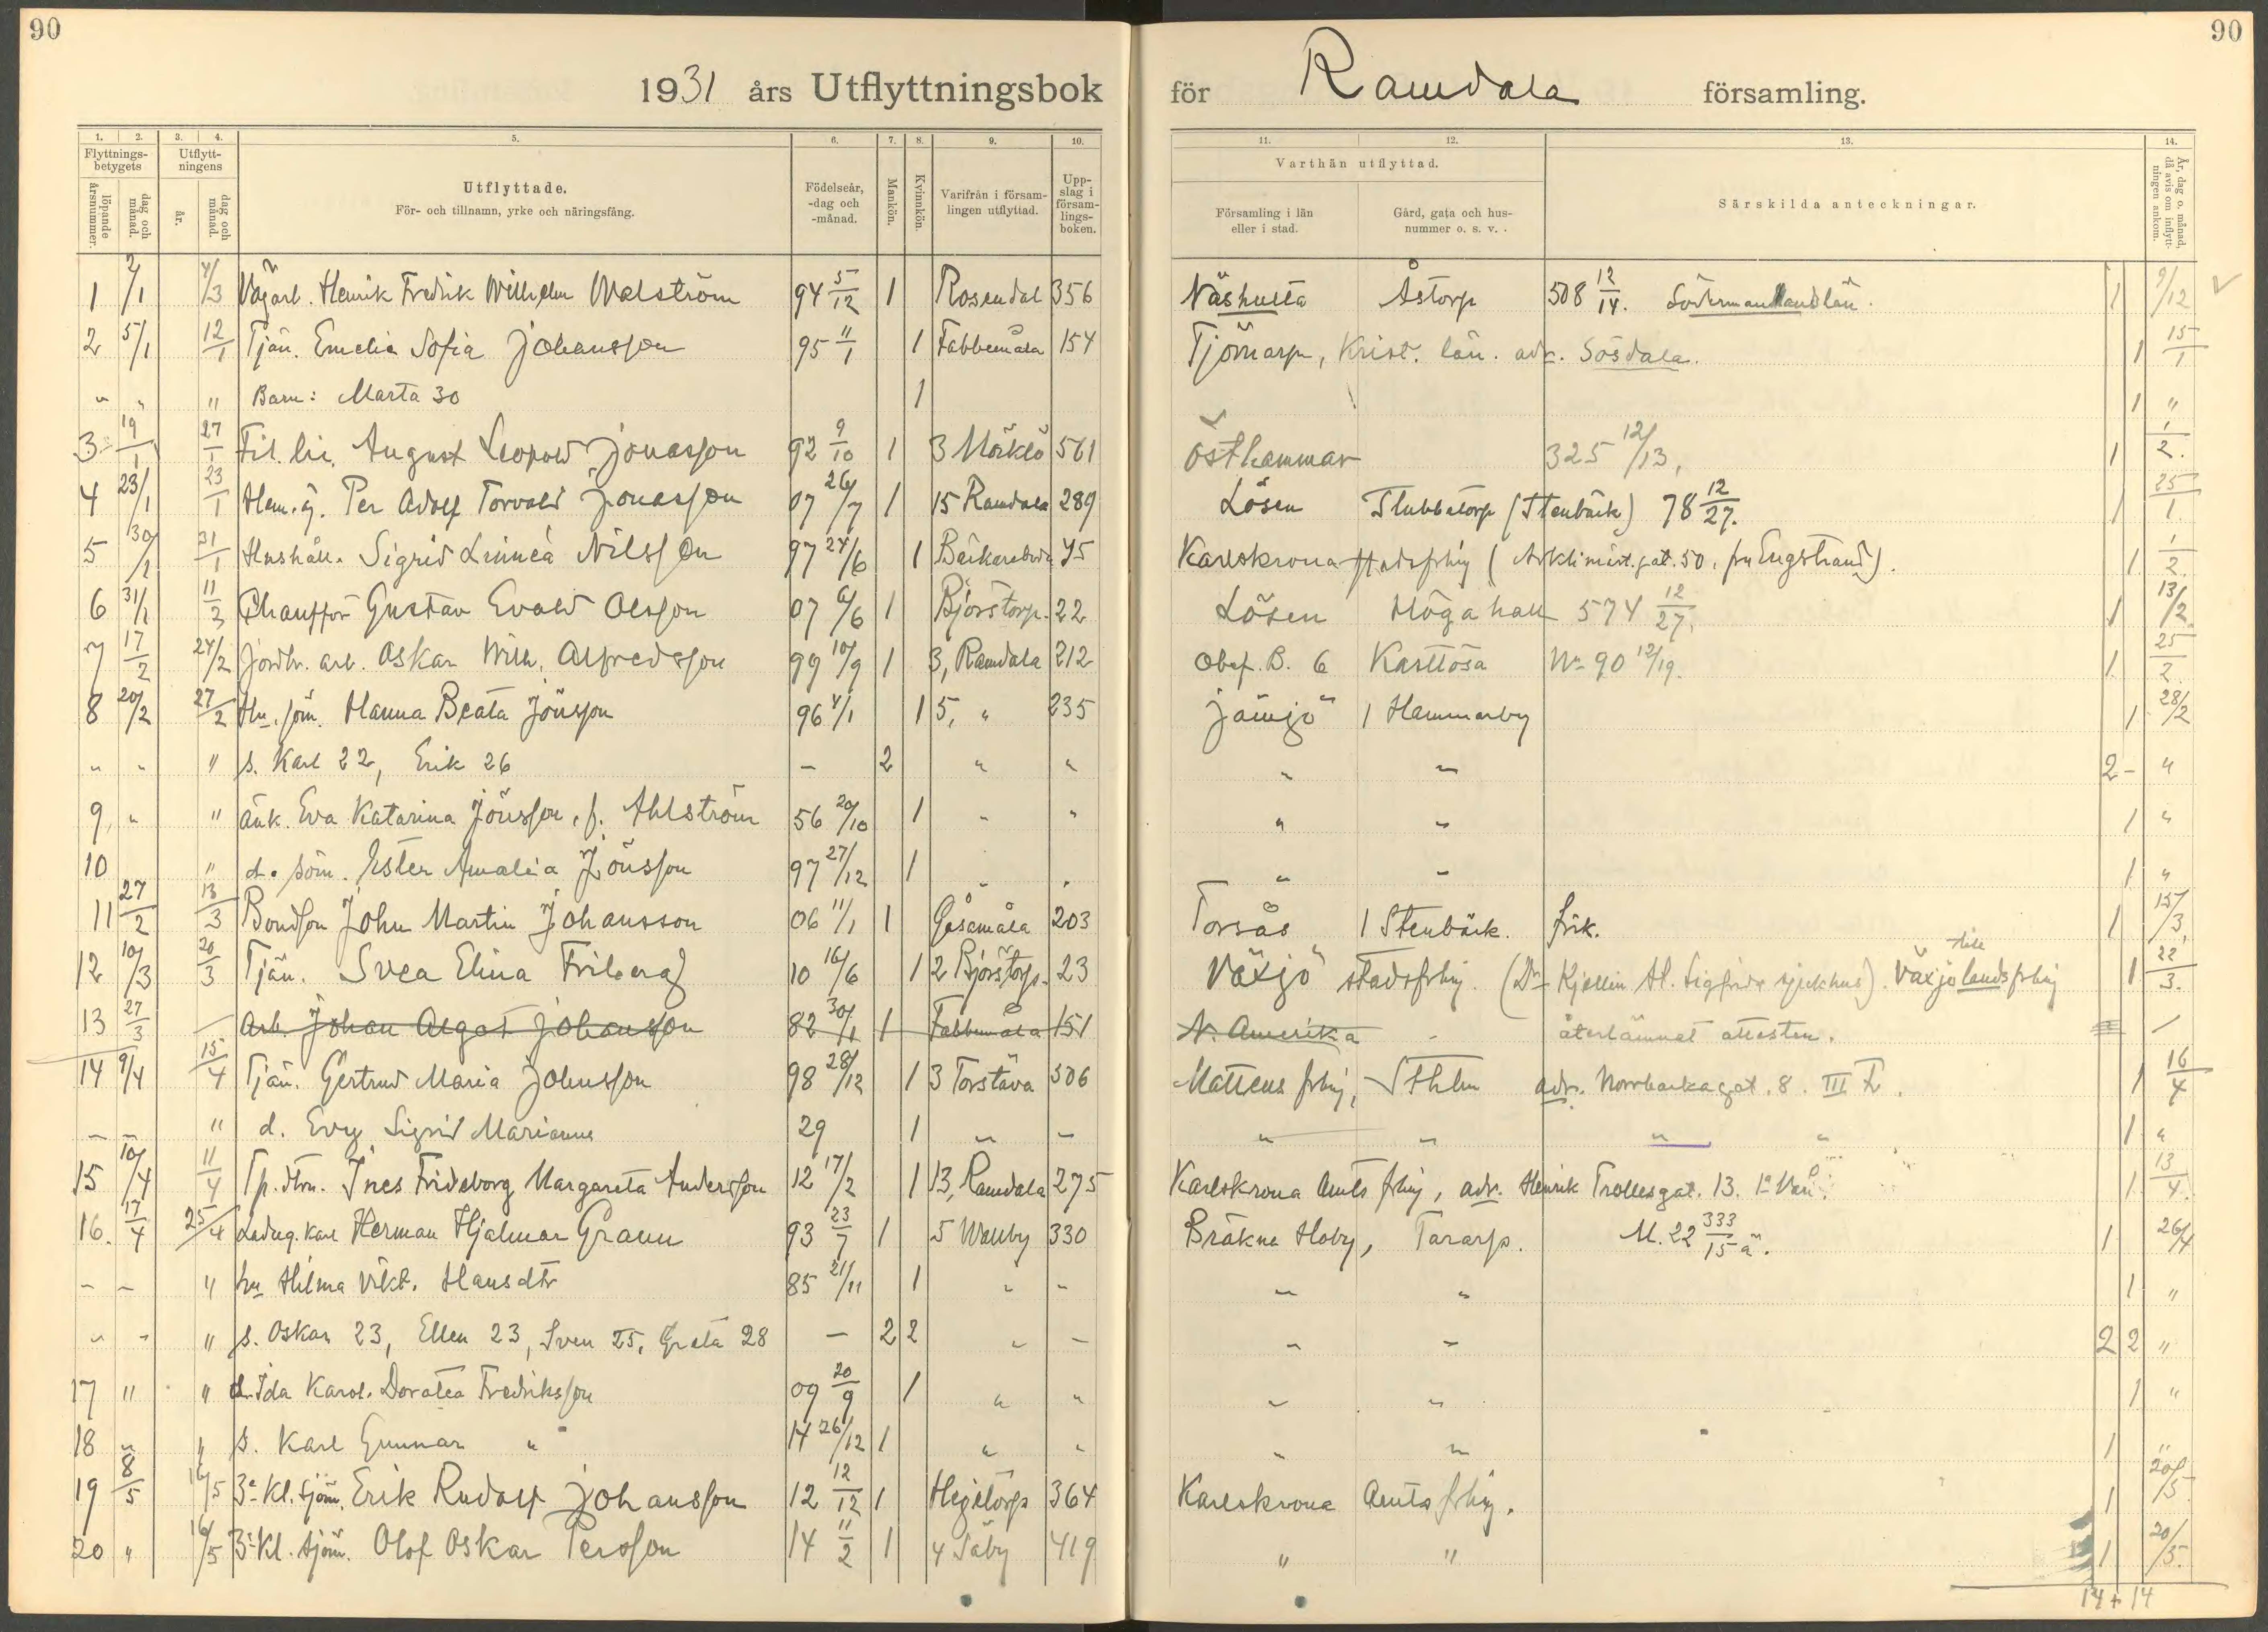 90
90
1931 års Utflyttningsbok för Ramdala församling.
1. 2. 3. 4. 5. 6. 7. 8. 9. 10. 11. 12. 13. 14.
Flyttnings-betygets löpande årsnummer. dag och månad. Utflytt-ningens år. dag och månad. Utflyttade. För- och tillnamn, yrke och näringsfång. Födelseår, -dag och -månad. Mankön. Kvinnkön. Varifrån i försam-lingen utflyttad. Upp-slag i försam-lings-boken. Varthän utflyttad. Församling i län eller i stad. Gård, gata och hus-nummer o. s. v. Särskilda anteckningar. År, dag o. månad, då avis om inflytt-ningen ankom.
1 2/1 4/3 Vägarb. Henrik Fredrik Wilhelm Walström 94 5/12 1 Rosendal 356 Näshulta Åstorp 508 12/14. Södermanlands län. 1 9/12
2 5/1 12/1 Tjän. Emelia Sofia Johansson 95 11/1 1 Fabbemåla 154 Tjörnarp, Krist. län. adr. Sösdala. 1 15/1
" " " Barn: Marta 30 1 1 "
3 19/1 27/1 Fil. lic. August Leopold Jonasson 92 9/10 1 3 Möcklö 561 Östhammar 325 12/13, 1 1/2.
4 23/1 23/1 Hem. äg. Per Adolf Torvald Jonasson 07 26/7 1 15 Ramdala 289 Lösen Stubbetorp (Stenbäck) 78 12/27. 1 25/1
5 30/1 31/1 Hushåll. Sigrid Linnéa Nilsson 97 24/6 1 45 Karlskrona stadsfrhlg (Arklimäst. gat. 50, fru Engstrand). 1 1/2.
6 31/1 11/2 Chaufför Gustav Evald Olsson 07 6/6 1 Björstorp. 22 Lösen Höga hall 574 12/27. 1 13/2.
7 17/2 24/2 Jordbr. arb. Oskar Wilh. Alfredsson 99 10/9 1 3, Ramdala 212 Obef. B. 6 Kastlösa Nr 90 12/19. 1 25/2.
8 20/2 27/2 Hn, söm. Hanna Beata Jönsson 96 4/1 1 5, " 235 Jämjö 1 Hammarby 1 28/2
" " " s. Karl 22, Erik 26 – 2 " " " " 2 – "
9, " " änk. Eva Katarina Jönsson, f. Ahlström 56 20/10 1 " " " " 1 "
10 " d. söm. Ester Amalia Jönsson 97 27/12 1 " " " " 1 "
11 27/2 13/3 Bondson John Martin Johansson 06 11/1 1 Gåsamåla 203 Torsås 1 Stenbäck. frik. 1 15/3.
12 10/3 20/3 Tjän. Svea Elina Friberg 10 16/6 1 2 Björstorp. 23 Växjö stadsfrhlg. (Dr Kjellin St. Sigfrids sjukhus). till Växjö landsfrhlg 1 22/3.
13 27/3 – Arb. Johan Algot Johansson 82 30/1 1 Fabbemåla 151 N. Amerika – återlämnat attesten.
14 9/4 15/4 Tjän. Gertrud Maria Johnsson 98 28/12 1 3 Torstäva 306 Matteus frhlg, Sthlm adr. Norrbackagat. 8. III 1 16/4
– – " d. Evy Sigrid Marianne 29 1 " – " " " " 1 "
15 10/4 11/4 Tp. dtr. Ines Frideborg Margareta Andersson 12 17/2 1 13, Ramdala 275 Karlskrona Amts frhlg, adr. Henrik Trollesgat. 13. 1a Vån. 1 13/4.
16. 17/4 25/4 Ladug. karl Herman Hjalmar Grann 93 23/7 1 5 Wallby 330 Bräkne Hoby, Tararp. M. 22 333/15 ä. 1 26/4
– – " hu Hilma Vikt. Hansdtr 85 21/11 1 " – " " 1 "
" – " s. Oskar 23, Ellen 23, Sven 25, Greta 28 – 2 2 " – " " 2 2 "
17 " " d. Ida Karol. Doratea Fredriksson 09 20/9 1 " " " " 1 "
18 " " s. Karl Gunnar " 14 26/12 1 " " " " 1 "
19 8/5 16/5 3e Kl. Sjöm. Erik Rudolf Johansson 12 12/12 1 Hejetorp 364 Karlskrona Amts frhlg. 1 20/5.
20 " 16/5 3e Kl. sjöm. Olof Oskar Persson 14 11/2 1 4 Säby 419 " " 1 20/5.
14 + 14